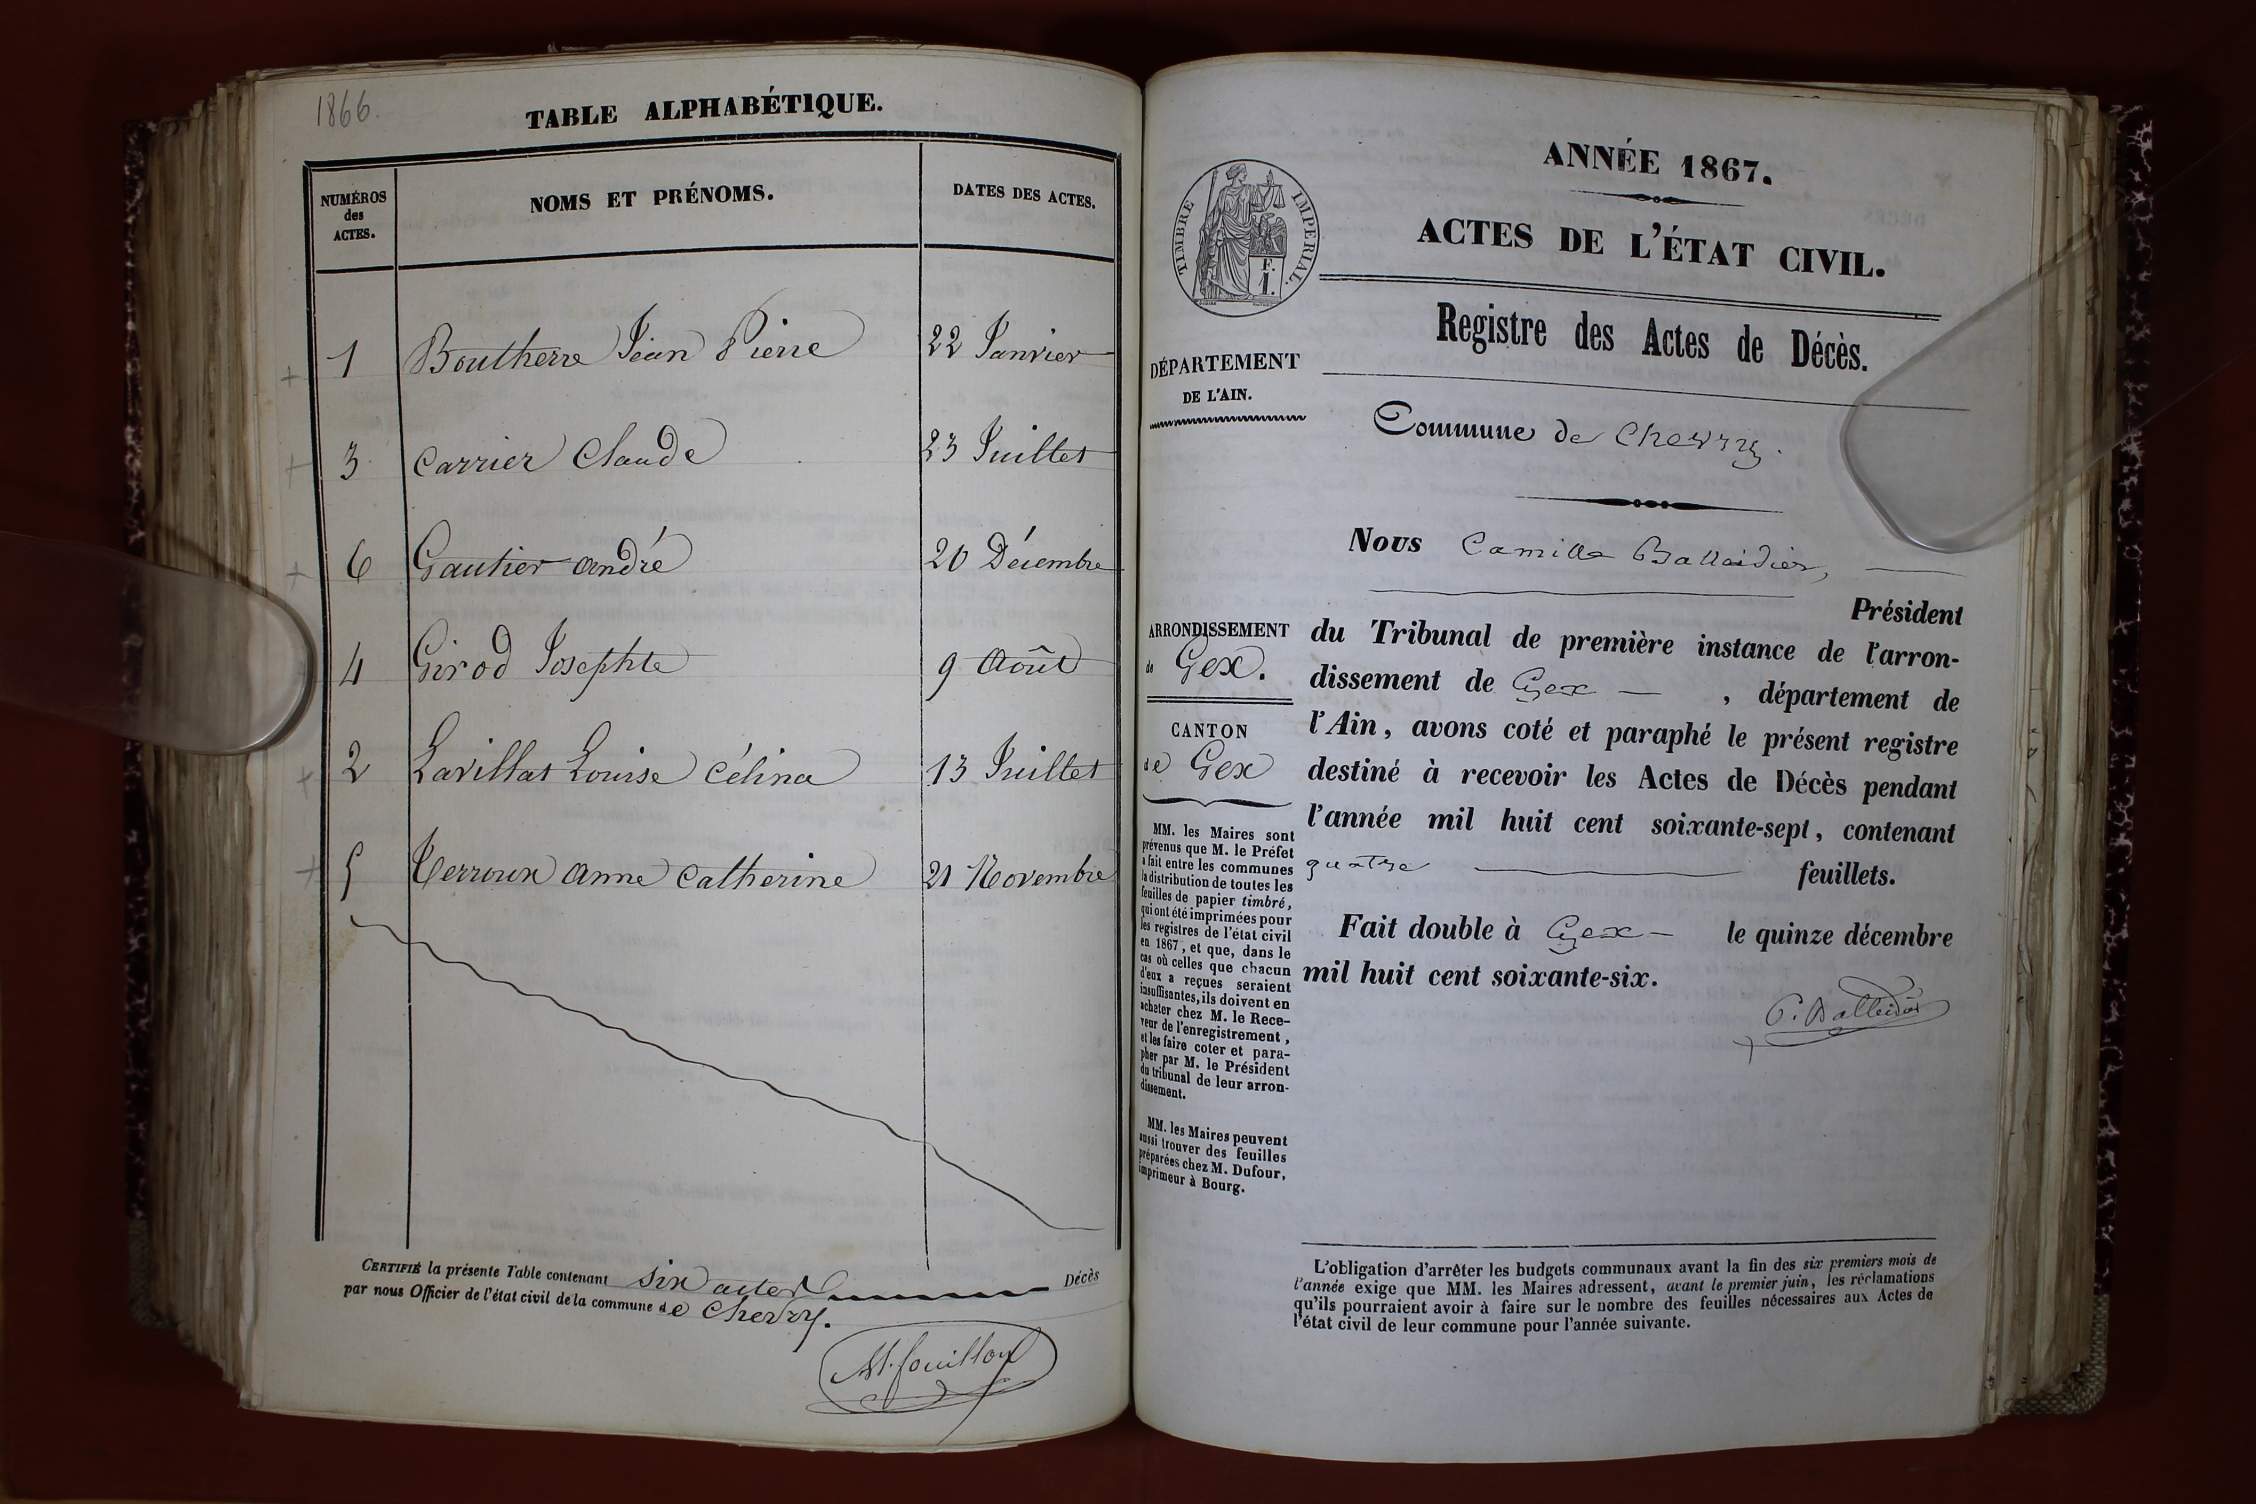 1866.
TABLE ALPHABÉTIQUE.
NUMÉROS
des
ACTES.
NOMS ET PRÉNOMS.
DATES DES ACTES.
1 Boutherre Jean Pierre 22 Janvier
3 Carrier Claude 23 Juillet
6 Gautier André 20 Décembre
4 Girod Josephte 9 Août
2 Lavillat Louise Célina 13 Juillet
5 Terroux Anne Catherine 21 Novembre
CERTIFIÉ la présente Table contenant six actes Décès
par nous Officier de l'état civil de la commune de Chevry.
ANNÉE 1867.
ACTES DE L'ÉTAT CIVIL.
TIMBRE IMPERIAL.
F.
1.
Registre des Actes de Décès.
DÉPARTEMENT
DE L'AIN.
Commune de Chevry.
Nous Camille Balleidier,
Président
du Tribunal de première instance de l'arron-
dissement de Gex , département de
l'Ain, avons coté et paraphé le présent registre
destiné à recevoir les Actes de Décès pendant
l'année mil huit cent soixante-sept, contenant
quatre feuillets.
Fait double à Gex le quinze décembre
mil huit cent soixante-six.
C. Balleidier
ARRONDISSEMENT
de Gex.
CANTON
de Gex
MM. les Maires sont
prévenus que M. le Préfet
a fait entre les communes
la distribution de toutes les
feuilles de papier timbré,
qui ont été imprimées pour
les registres de l'état civil
en 1867, et que, dans le
cas où celles que chacun
d'eux a reçues seraient
insuffisantes, ils doivent en
acheter chez M. le Rece-
veur de l'enregistrement,
et les faire coter et para-
pher par M. le Président
du tribunal de leur arron-
dissement.
MM. les Maires peuvent
aussi trouver des feuilles
préparées chez M. Dufour,
imprimeur à Bourg.
L'obligation d'arrêter les budgets communaux avant la fin des six premiers mois de
l'année exige que MM. les Maires adressent, avant le premier juin, les réclamations
qu'ils pourraient avoir à faire sur le nombre des feuilles nécessaires aux Actes de
l'état civil de leur commune pour l'année suivante.